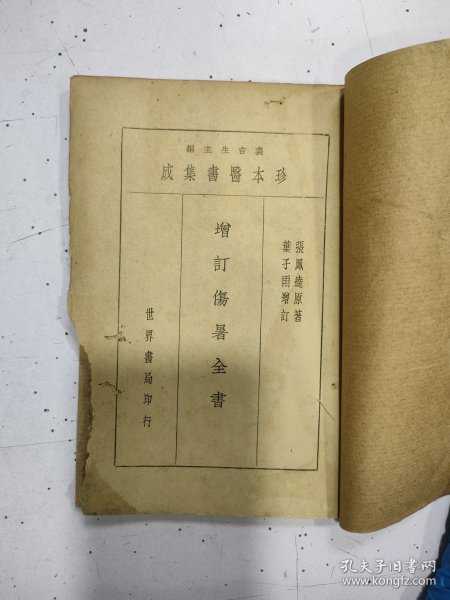 裘吉生主編
珍本醫書集成
張鳳逵原著
葉子雨增訂
增訂傷暑全書
世界書局印行
孔夫子旧书网
www.kongfz.com